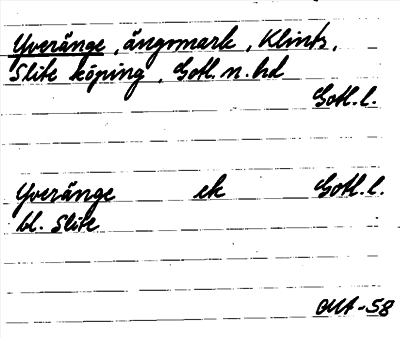 Yveränge, ängsmark, Klints,
Slite köping, Gotl. n. hd
Gotl. l.
Yveränge ek Gotl. l.
bl. Slite
-58